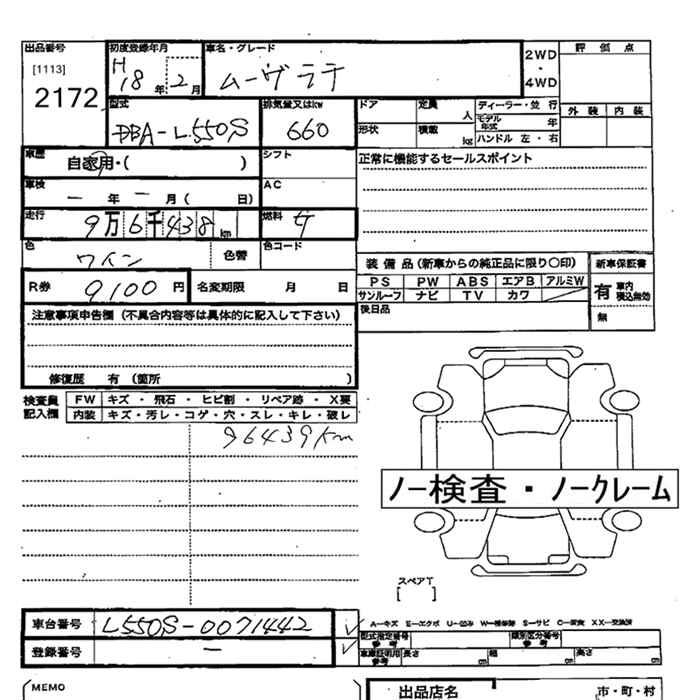 出品番号 初度登録年月 車名・グレード 2WD・4WD 評価点
[1113] H18年2月 ムーヴラテ
2172
型式 排気量又はkw ドア 定員 人 ディーラー・並行 外装 内装
DBA-L550S 660 形状 積載 kg モデル年式 年
ハンドル 左・右
車歴 自家用・( ) シフト 正常に機能するセールスポイント
車検 ー年ー月(日) AC
走行 9万6千438km 燃料 ガ
色 ワイン 色替 色コード 装備品(新車からの純正品に限り○印) 新車保証書
R券 9,100円 名変期限 月 日 PS PW ABS エアB アルミW 有 車内積込無効
サンルーフ ナビ TV カワ
注意事項申告欄(不具合内容等は具体的に記入して下さい) 後日品 無
修復歴 有(箇所 )
検査員記入欄 FW キズ・飛石・ヒビ割・リペア跡・X要
内装 キズ・汚レ・コゲ・穴・スレ・キレ・破レ
96439km
ノー検査・ノークレーム
スペアT
[ ]
車台番号 L550S-0071442 A―キズ E―エクボ U―凹み W―補修跡 S―サビ C―腐食 XX―交換済
型式指定番号 参考 類別区分番号 参考
登録番号 ー 車庫証明用 参考 長さ cm 幅 cm 高さ cm
MEMO 出品店名 市・町・村